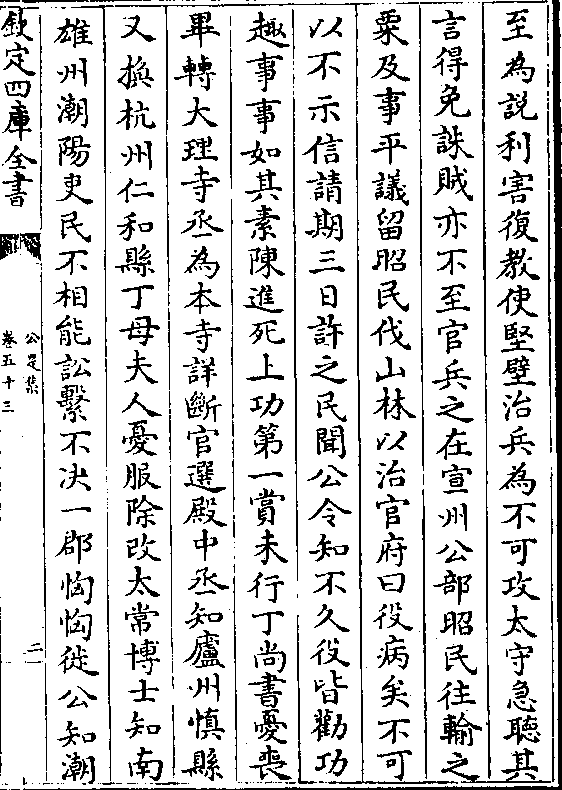 至為說利害復教使堅壁治兵為不可攻太守急聽其
言得免誅賊亦不至官兵之在宣州公部昭民往輸之
粟及事平議留昭民伐山林以治官府曰役病矣不可
以不示信請期三日許之民聞公令知不久役皆勸功
趣事事如其素陳進死上功第一賞未行丁尚書憂喪
畢轉大理寺丞為本寺詳斷官選殿中丞知廬州慎縣
又換杭州仁和縣丁母夫人憂服除改太常博士知南
雄州潮陽吏民不相能訟繫不决一郡恟恟徙公知潮
欽定四庫全書
公是集
卷五十三
二